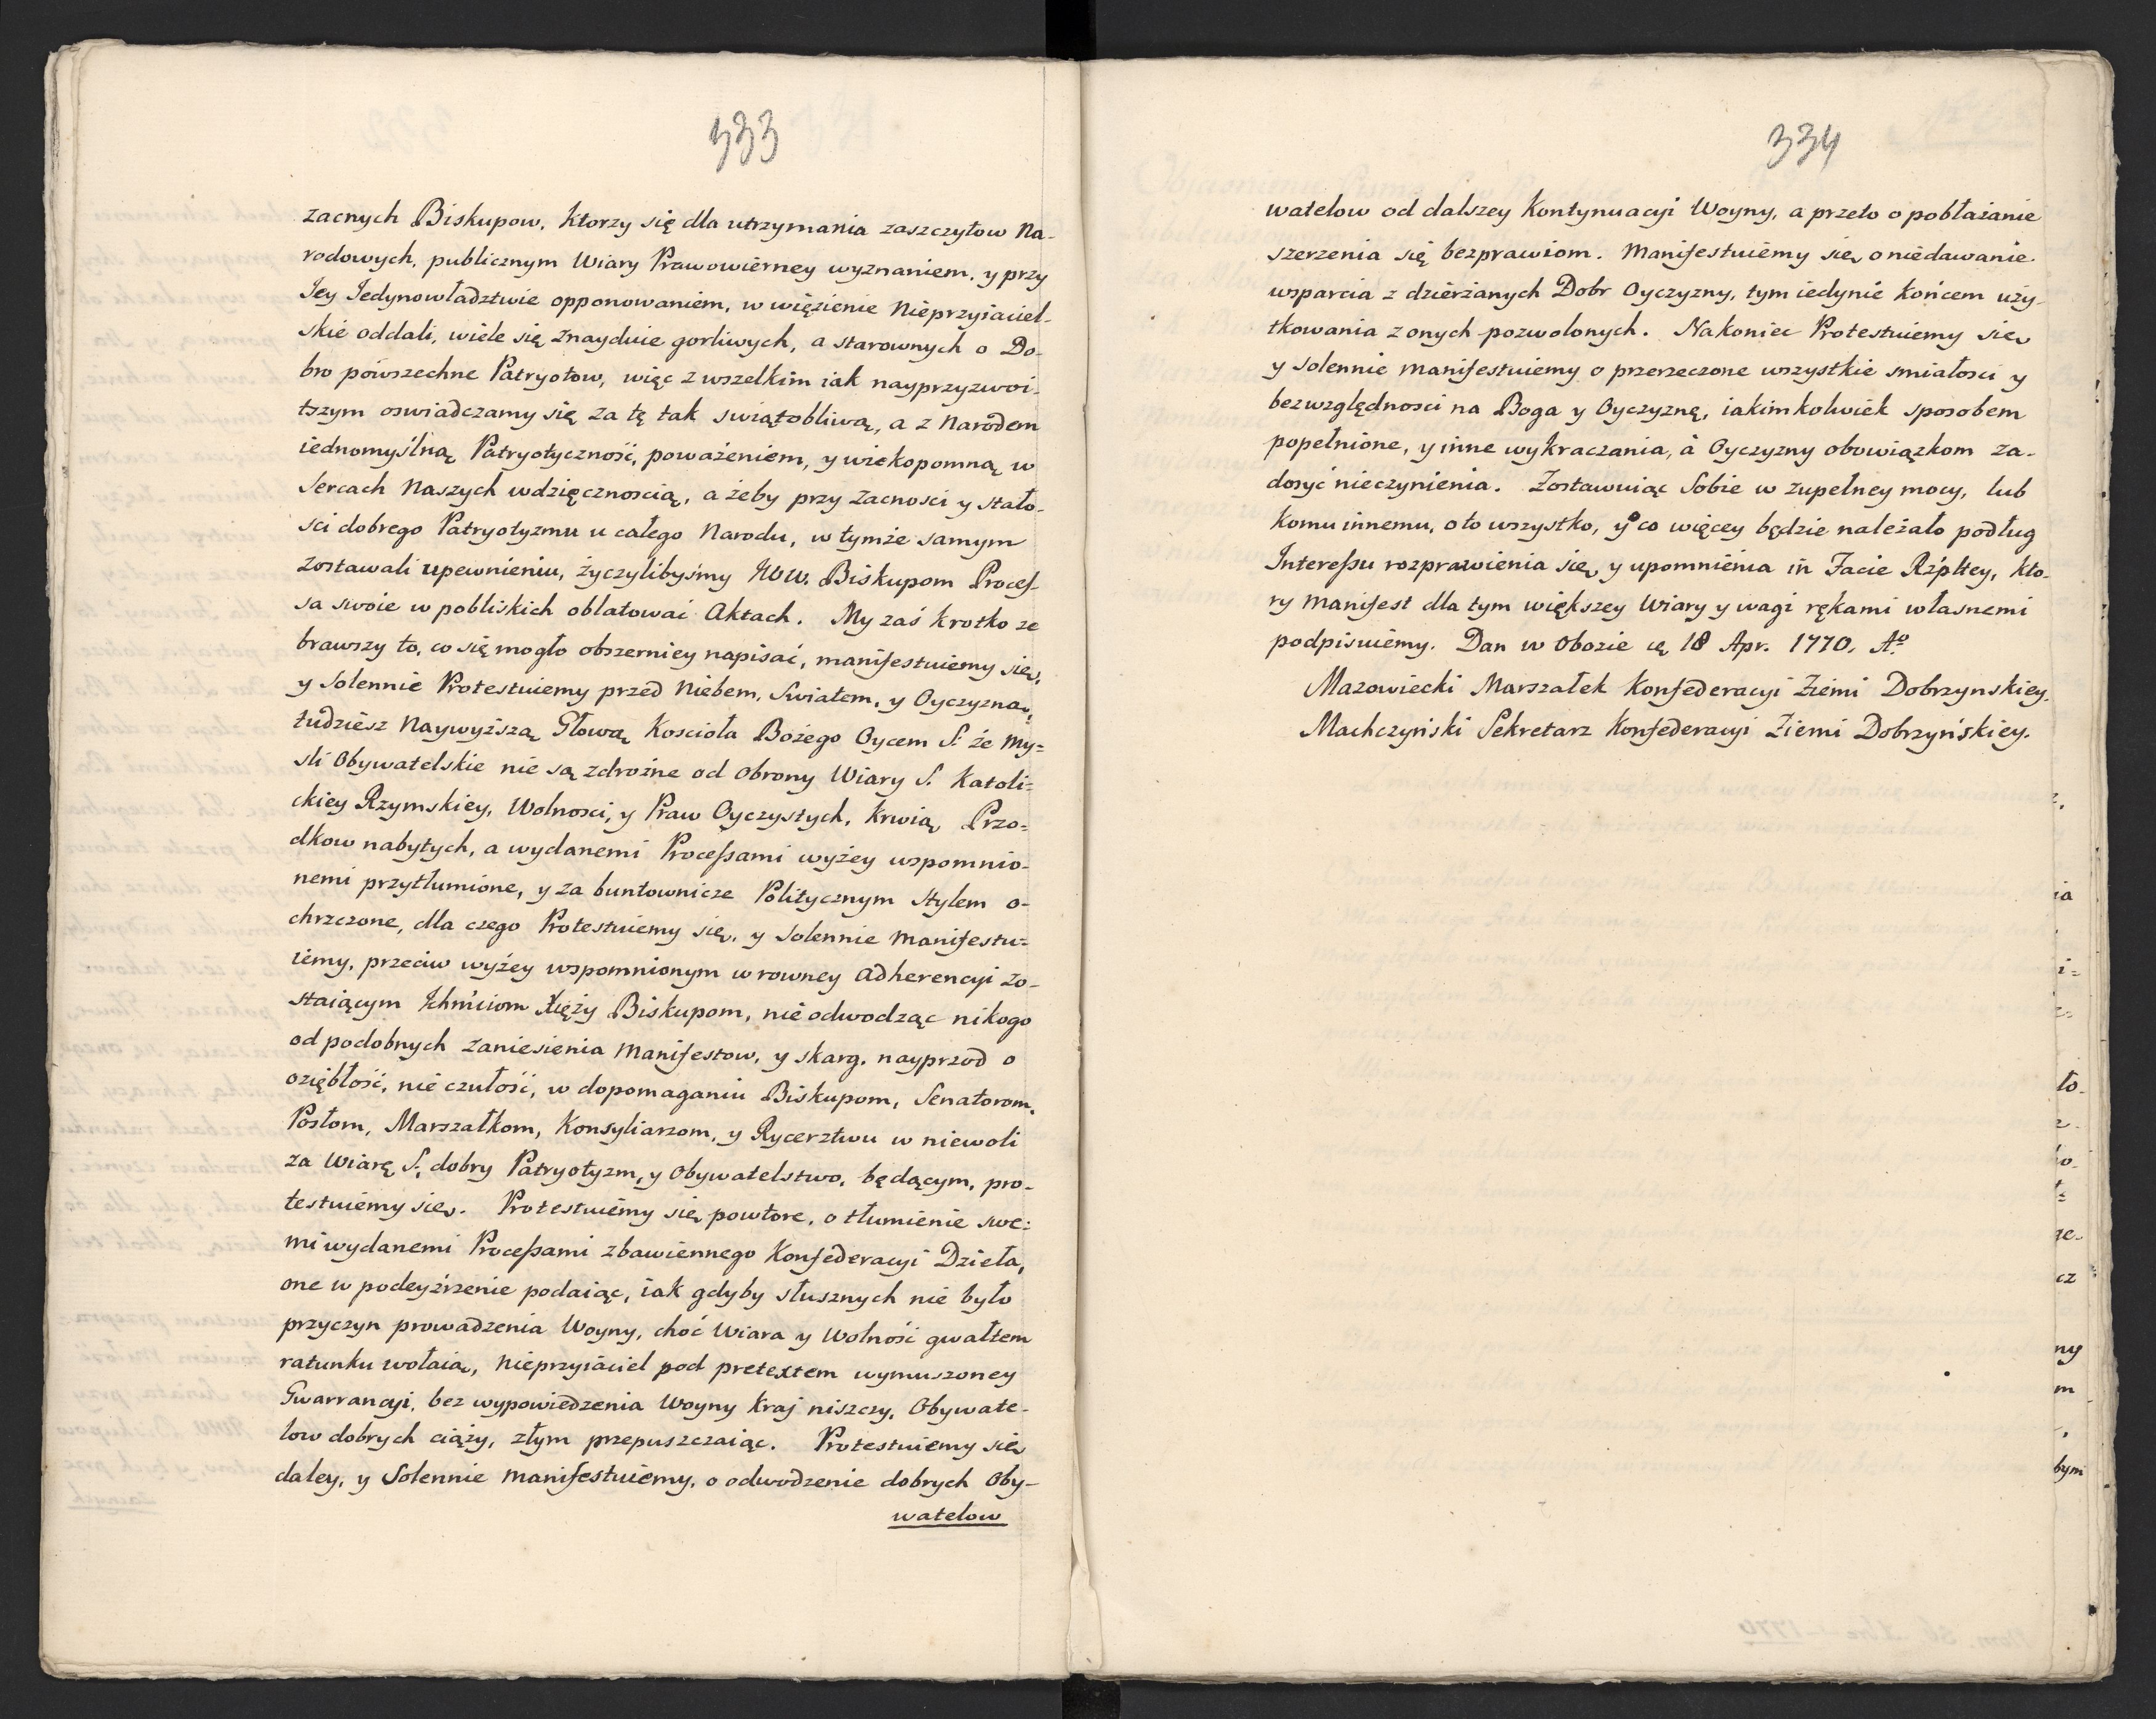 333
zacnych Biskupow, Ktorzy się dla utrzymania zaszczytow Na-
rodowych, publicznym Wiary Prawowierney wyznaniem, y przy
Jey Jedynowładztwie opponowaniem, w więzienie Nieprzyiaciel-
skie oddali, wiele się znayduie gorliwych, a starownych o Do-
bro powszechne Patryotow, więc z wszelkim iak nayprzyzwoi-
tszym oswiadczamy się za tę tak swiątobliwą, a z Narodem
iednomyślną Patryotyczność, poważeniem, y wiekopomną w
Sercach Naszych wdzięcznoscią, a żeby przy Zacnosci y stało-
sci dobrego Patryotyzmu u całego Narodu, w tymże samym
zostawali upewnieniu, życzylibyśmy JWW. Biskupom Proces-
sa swoie w pobliskich oblatować Aktach. My zaś krotko ze
brawszy to, co się mogło obszerniey napisać, manifestuiemy się,
y Solennie Protestuiemy przed Niebem, Swiatem, y Oyczyzną,
tudziesz Naywyższą Głową Kosciola Bożego Oycem S. że My=
sli Obywatelskie nie są zdrożne od Obrony Wiary S. Katoli=
ckiey Rzymskiey, Wolnosci, y Praw Oyczystych, Krwią Przo=
dkow nabytych, a wydanemi Processami wyżey wspomnio-
nemi przytłumione, y za buntownicze Politycznym Stylem o-
chrzczone, dla czego Protestuiemy się, y Solennie Manifestu=
iemy, przeciw wyżey wspomnionym w rowney adherencyi zo-
staiącym Ichmciom Xięży Biskupom, nie odwodząc nikogo
od podobnych zaniesienia Manifestow, y skarg, nayprzod o
oziębłość, nie czułość, w dopomaganiu Biskupom, Senatorom,
Posłom, Marszałkom, Konsyliarzom, y Rycerztwu w niewoli
za Wiarę S., dobry Patryotyzm, y Obywatelstwo, będącym, pro-
testuiemy się. Protestuiemy się powtore, o tłumienie swe=
mi wydanemi Processami zbawiennego Konfederacyi Dzieła,
one w podeyźrzenie podaiąc, iak gdyby słusznych nie było
przyczyn prowadzenia Woyny, choć Wiara y Wolność gwałtem
ratunku wołaią, Nieprzyiaciel pod pretextem wymuszoney
Gwarrancyi, bez wypowiedzenia Woyny Kraj niszczy, Obywate-
low dobrych ciąży, złym przepuszczaiąc. Protestuiemy się
daley, y Solennie manifestuiemy, o odwodzenie dobrych Oby-
watelow
334
watelow od dalszey Kontynuacyi Woyny, a przeto o pobłażanie
szerzenia się bezprawiom. Manifestuiemy się, o niedawanie
wsparcia z dzierżanych Dobr Oyczyzny, tym iedynie Końcem uży-
tkowania z onych pozwolonych. Nakoniec Protestuiemy się
y Solennie manifestuiemy o przerzeczone wszystkie smiałosci y
bezwzględnosci na Boga y Oyczyznę, iakimkolwiek sposobem
popełnione, y inne wykraczania, à Oyczyzny obowiązkom za-
dosyć nieczynienia. Zostawuiąc Sobie w zupełney mocy, lub
Komu innemu, o to wszystko, y co więcey będzie należało podług
Interessu rozprawienia się, y upomnienia in Facie Rzpltey, kto-
ry Manifest dla tym większey Wiary y wagi rękami własnemi
podpisuiemy. Dan w Obozie 18 Apr. 1770. Aº.
Mazowiecki Marszałek Konfederacyi Ziemi Dobrzynskiey.
Machczyński Sekretarz Konfederacyi Ziemi Dobrzyńskiey.
ia
i=
to-
ze-
cz
ny
m
bym